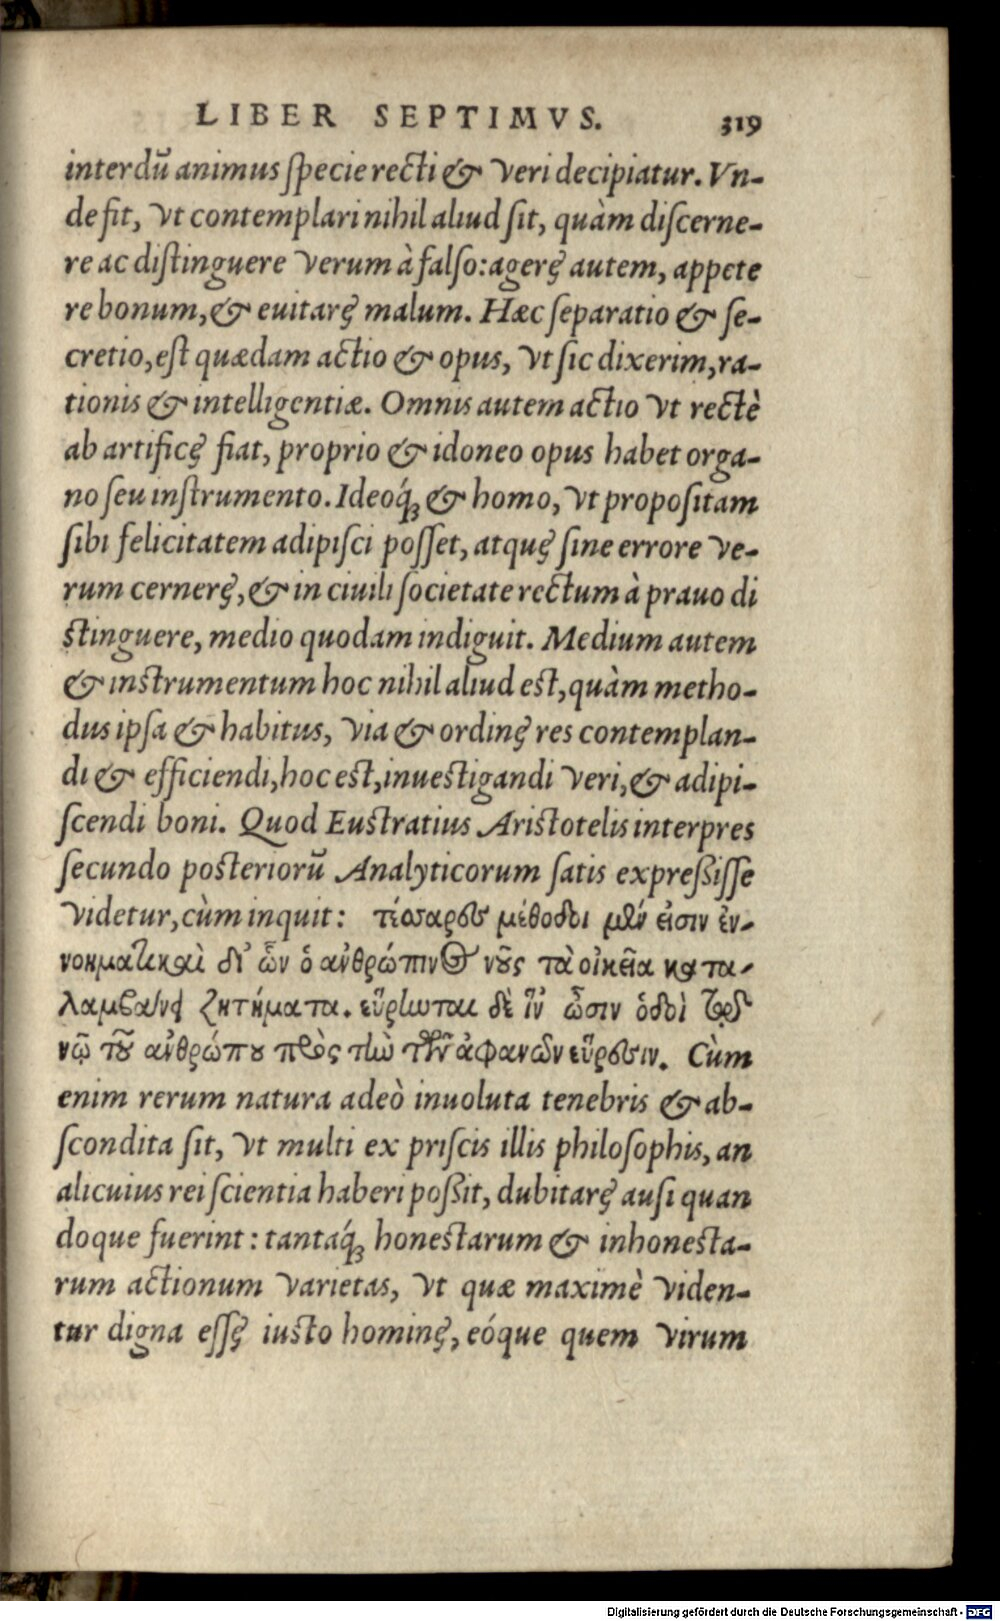 LIBER SEPTIMVS. 319
interdū animus specie recti & veri decipiatur. Vn-
de fit, vt contemplari nihil aliud sit, quàm discerne-
re ac distinguere verum à falso: agere autem, appete
re bonum, & euitare malum. Hæc separatio & se-
cretio, est quædam actio & opus, vt sic dixerim, ra-
tionis & intelligentiæ. Omnis autem actio vt rectè
ab artifice fiat, proprio & idoneo opus habet orga-
no seu instrumento. Ideoq́; & homo, vt propositam
sibi felicitatem adipisci posset, atque sine errore ve-
rum cernere, & in ciuili societate rectum à prauo di
stinguere, medio quodam indiguit. Medium autem
& instrumentum hoc nihil aliud est, quàm metho-
dus ipsa & habitus, via & ordine res contemplan-
di & efficiendi, hoc est, inuestigandi veri, & adipi-
scendi boni. Quod Eustratius Aristotelis interpres
secundo posteriorū Analyticorum satis expreßisse
videtur, cùm inquit: τέσσαρες μέθοδοι μέν εἰσιν ἐν-
νοηματικαὶ δι' ὧν ὁ ἀνθρώπινος νοῦς τὰ οἰκεῖα κατα-
λαμβάνει ζητήματα. εὕρηνται δὲ ἵν' ὦσιν ὁδοὶ τῷ
νῷ τοῦ ἀνθρώπου πρὸς τὴν τῶν ἀφανῶν εὕρεσιν. Cùm
enim rerum natura adeò inuoluta tenebris & ab-
scondita sit, vt multi ex priscis illis philosophis, an
alicuius rei scientia haberi poßit, dubitare ausi quan
doque fuerint: tantaq́; honestarum & inhonesta-
rum actionum varietas, vt quæ maximè viden-
tur digna esse iusto homine, eóque quem virum
Digitalisierung gefördert durch die Deutsche Forschungsgemeinschaft - DFG